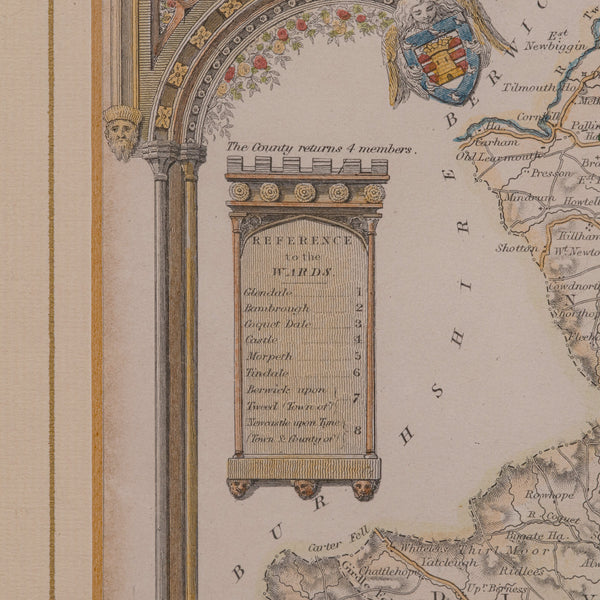 The County returns 4 members.
REFERENCE
to the
WARDS.
Glendale 1
Bambrough 2
Coquet Dale 3
Castle 4
Morpeth 5
Tindale 6
Berwick upon
Tweed (Town of) 7
Newcastle upon Tyne
(Town & County of) 8
BERWIC
SHIRE
BURGHSH
Est
Newbiggin
Tilmouth Ho.
Cornhill
Carham
Old Learmouth
Presson
Mindrum
Howtel
Killham
Shotton
Wt. Newton
Rowhope
R. Coquet
Bygate Ha.
Carter Fell
Whitelees
Thirl Moor
Yatcleugh
Ridlees
Chattlehope
Upr. Byrness